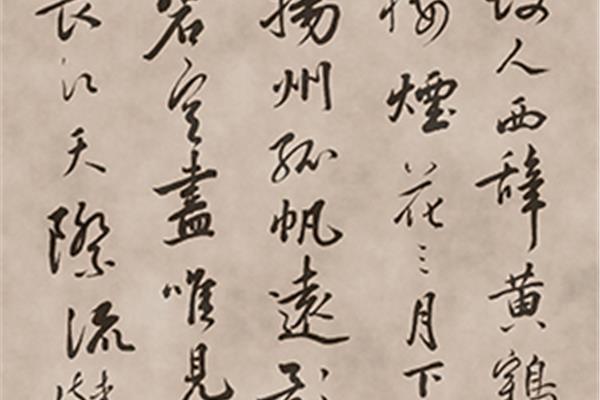 故人西辞黄鶴
楼煙花三月下
揚州孤帆遠影
碧空盡唯見
長江天際流